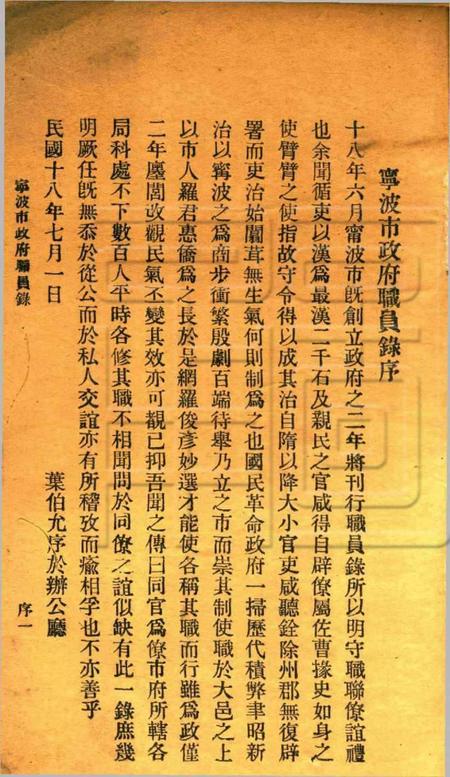 寧波市政府職員錄序
十八年六月甯波市既創立政府之二年將刊行職員錄所以明守職聯僚誼禮
也余聞循吏以漢爲最漢二千石及親民之官咸得自辟僚屬佐曹掾史如身之
使臂臂之使指故守令得以成其治自隋以降大小官吏咸聽銓除州郡無復辟
署而吏治始闒茸無生氣何則制爲之也國民革命政府一掃歷代積弊聿昭新
治以甯波之爲商步衝繁殷劇百端待舉乃立之市而崇其制使職於大邑之上
以市人羅君惠僑爲之長於是網羅俊彦妙選才能使各稱其職而行雖爲政僅
二年廛閭改觀民氣丕變其效亦可覩已抑吾聞之傳曰同官爲僚市府所轄各
局科處不下數百人平時各修其職不相聞問於同僚之誼似缺有此一錄庶幾
明厥任既無忝於從公而於私人交誼亦有所稽攷而瘉相孚也不亦善乎
民國十八年七月一日
葉伯允序於辦公廳
寧波市政府職員錄
序一